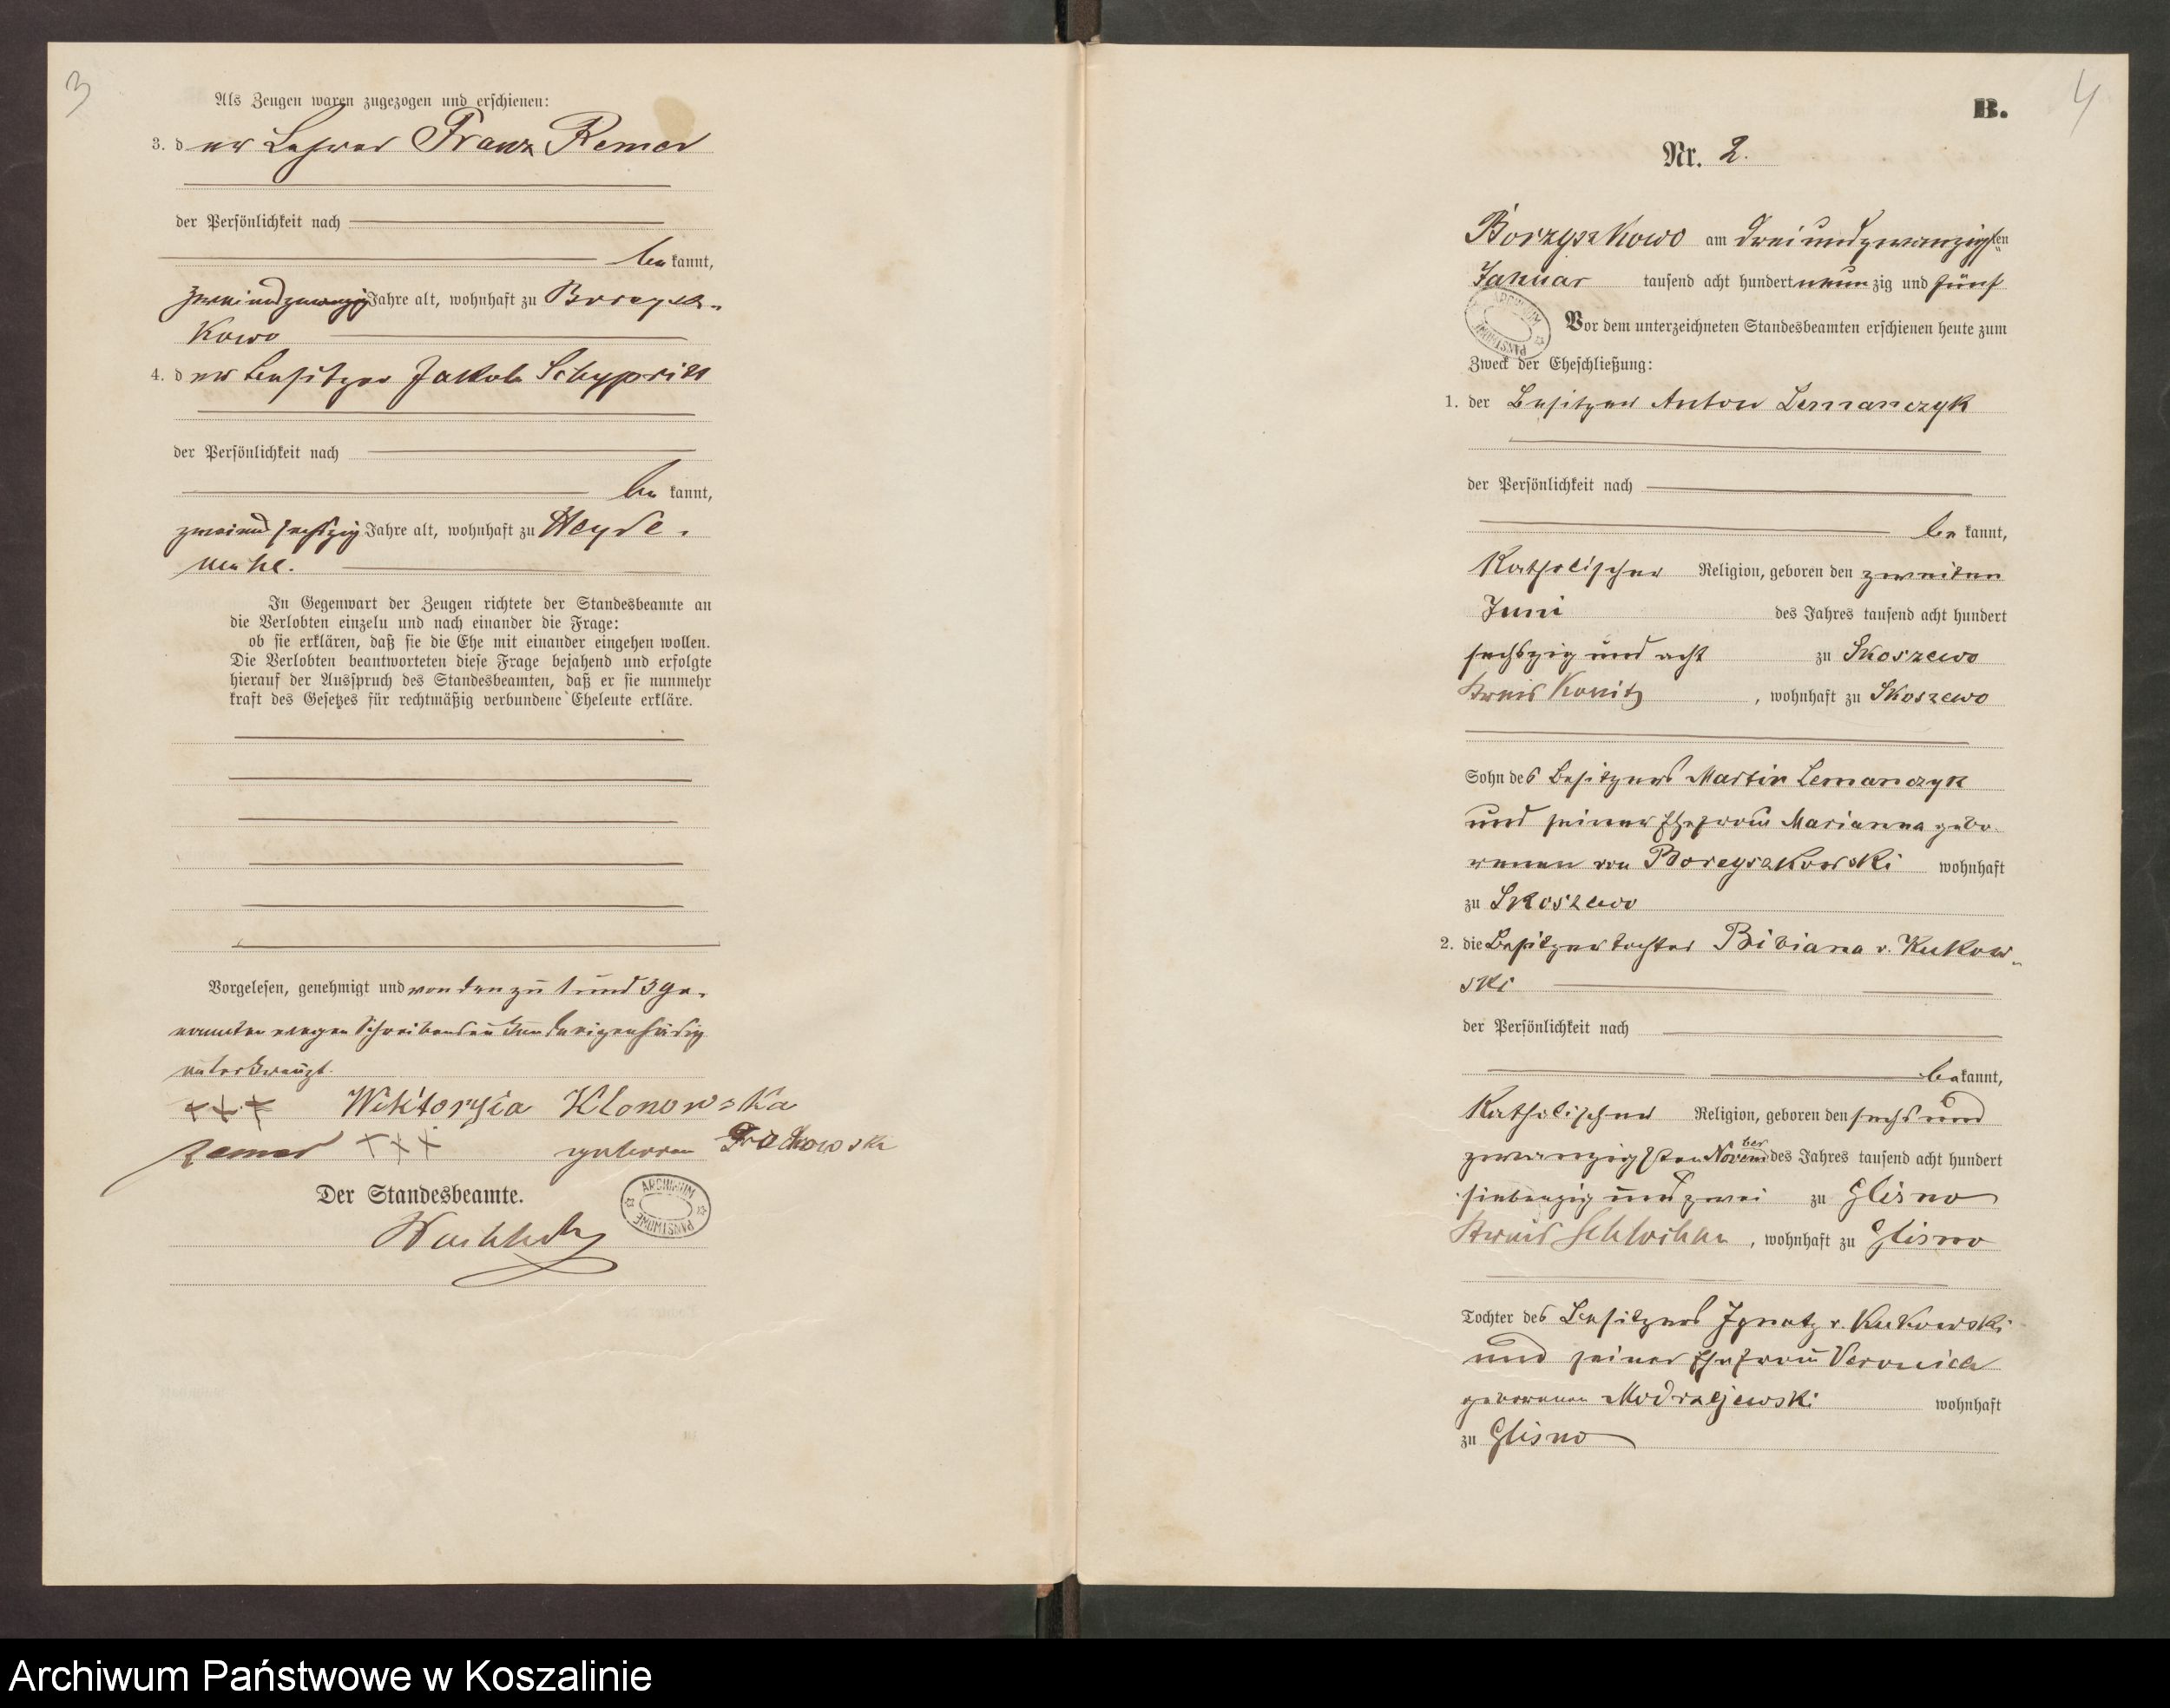 3
Als Zeugen waren zugezogen und erschienen:
3. der Lehrer Franz Remer
der Persönlichkeit nach
bekannt,
Jahre alt, wohnhaft zu Borzysz-
kowo
4. der Besitzer Jakob
der Persönlichkeit nach
bekannt,
zweiundsechszig Jahre alt, wohnhaft zu Heyde-
mühl.
In Gegenwart der Zeugen richtete der Standesbeamte an
die Verlobten einzeln und nach einander die Frage:
ob sie erklären, daß sie die Ehe mit einander eingehen wollen.
Die Verlobten beantworteten diese Frage bejahend und erfolgte
hierauf der Ausspruch des Standesbeamten, daß er sie nunmehr
kraft des Gesetzes für rechtmäßig verbundene Eheleute erkläre.
Vorgelesen, genehmigt und von den zu 1 und 3 ge-
nannten wegen Schreibens
unterkreuzt.
+++ Wiktorysia Klonowska
Remer +++ geboren
Der Standesbeamte.
ARCHIWUM PAŃSTWOWE
B.
4
Nr. 2.
Borzyszkowo am dreiundzwanzigsten
Januar tausend acht hundert neunzig und fünf
ARCHIWUM PAŃSTWOWE
Vor dem unterzeichneten Standesbeamten erschienen heute zum
Zweck der Eheschließung:
1. der Besitzer Anton Lemanczyk
der Persönlichkeit nach
bekannt,
Katholischer Religion, geboren den zweiten
Juni des Jahres tausend acht hundert
sechszig und acht zu Skoszewo
Kreis Konitz, wohnhaft zu Skoszewo
Sohn des Besitzers Martin Lemanczyk
und seiner Ehefrau Marianna gebo-
renen von Borzyszkowski wohnhaft
zu Skoszewo
2. die Besitzertochter Bibiana v. Kukow-
ski
der Persönlichkeit nach
bekannt,
Katholischer Religion, geboren den sechs und
zwanzigsten November des Jahres tausend acht hundert
siebenzig und zwei zu Glisno
Kreis Schlochau, wohnhaft zu Glisno
Tochter des Besitzers Ignatz v. Kukowski
und seiner Ehefrau Veronica
geborenen Modrzejewski wohnhaft
zu Glisno
Archiwum Państwowe w Koszalinie